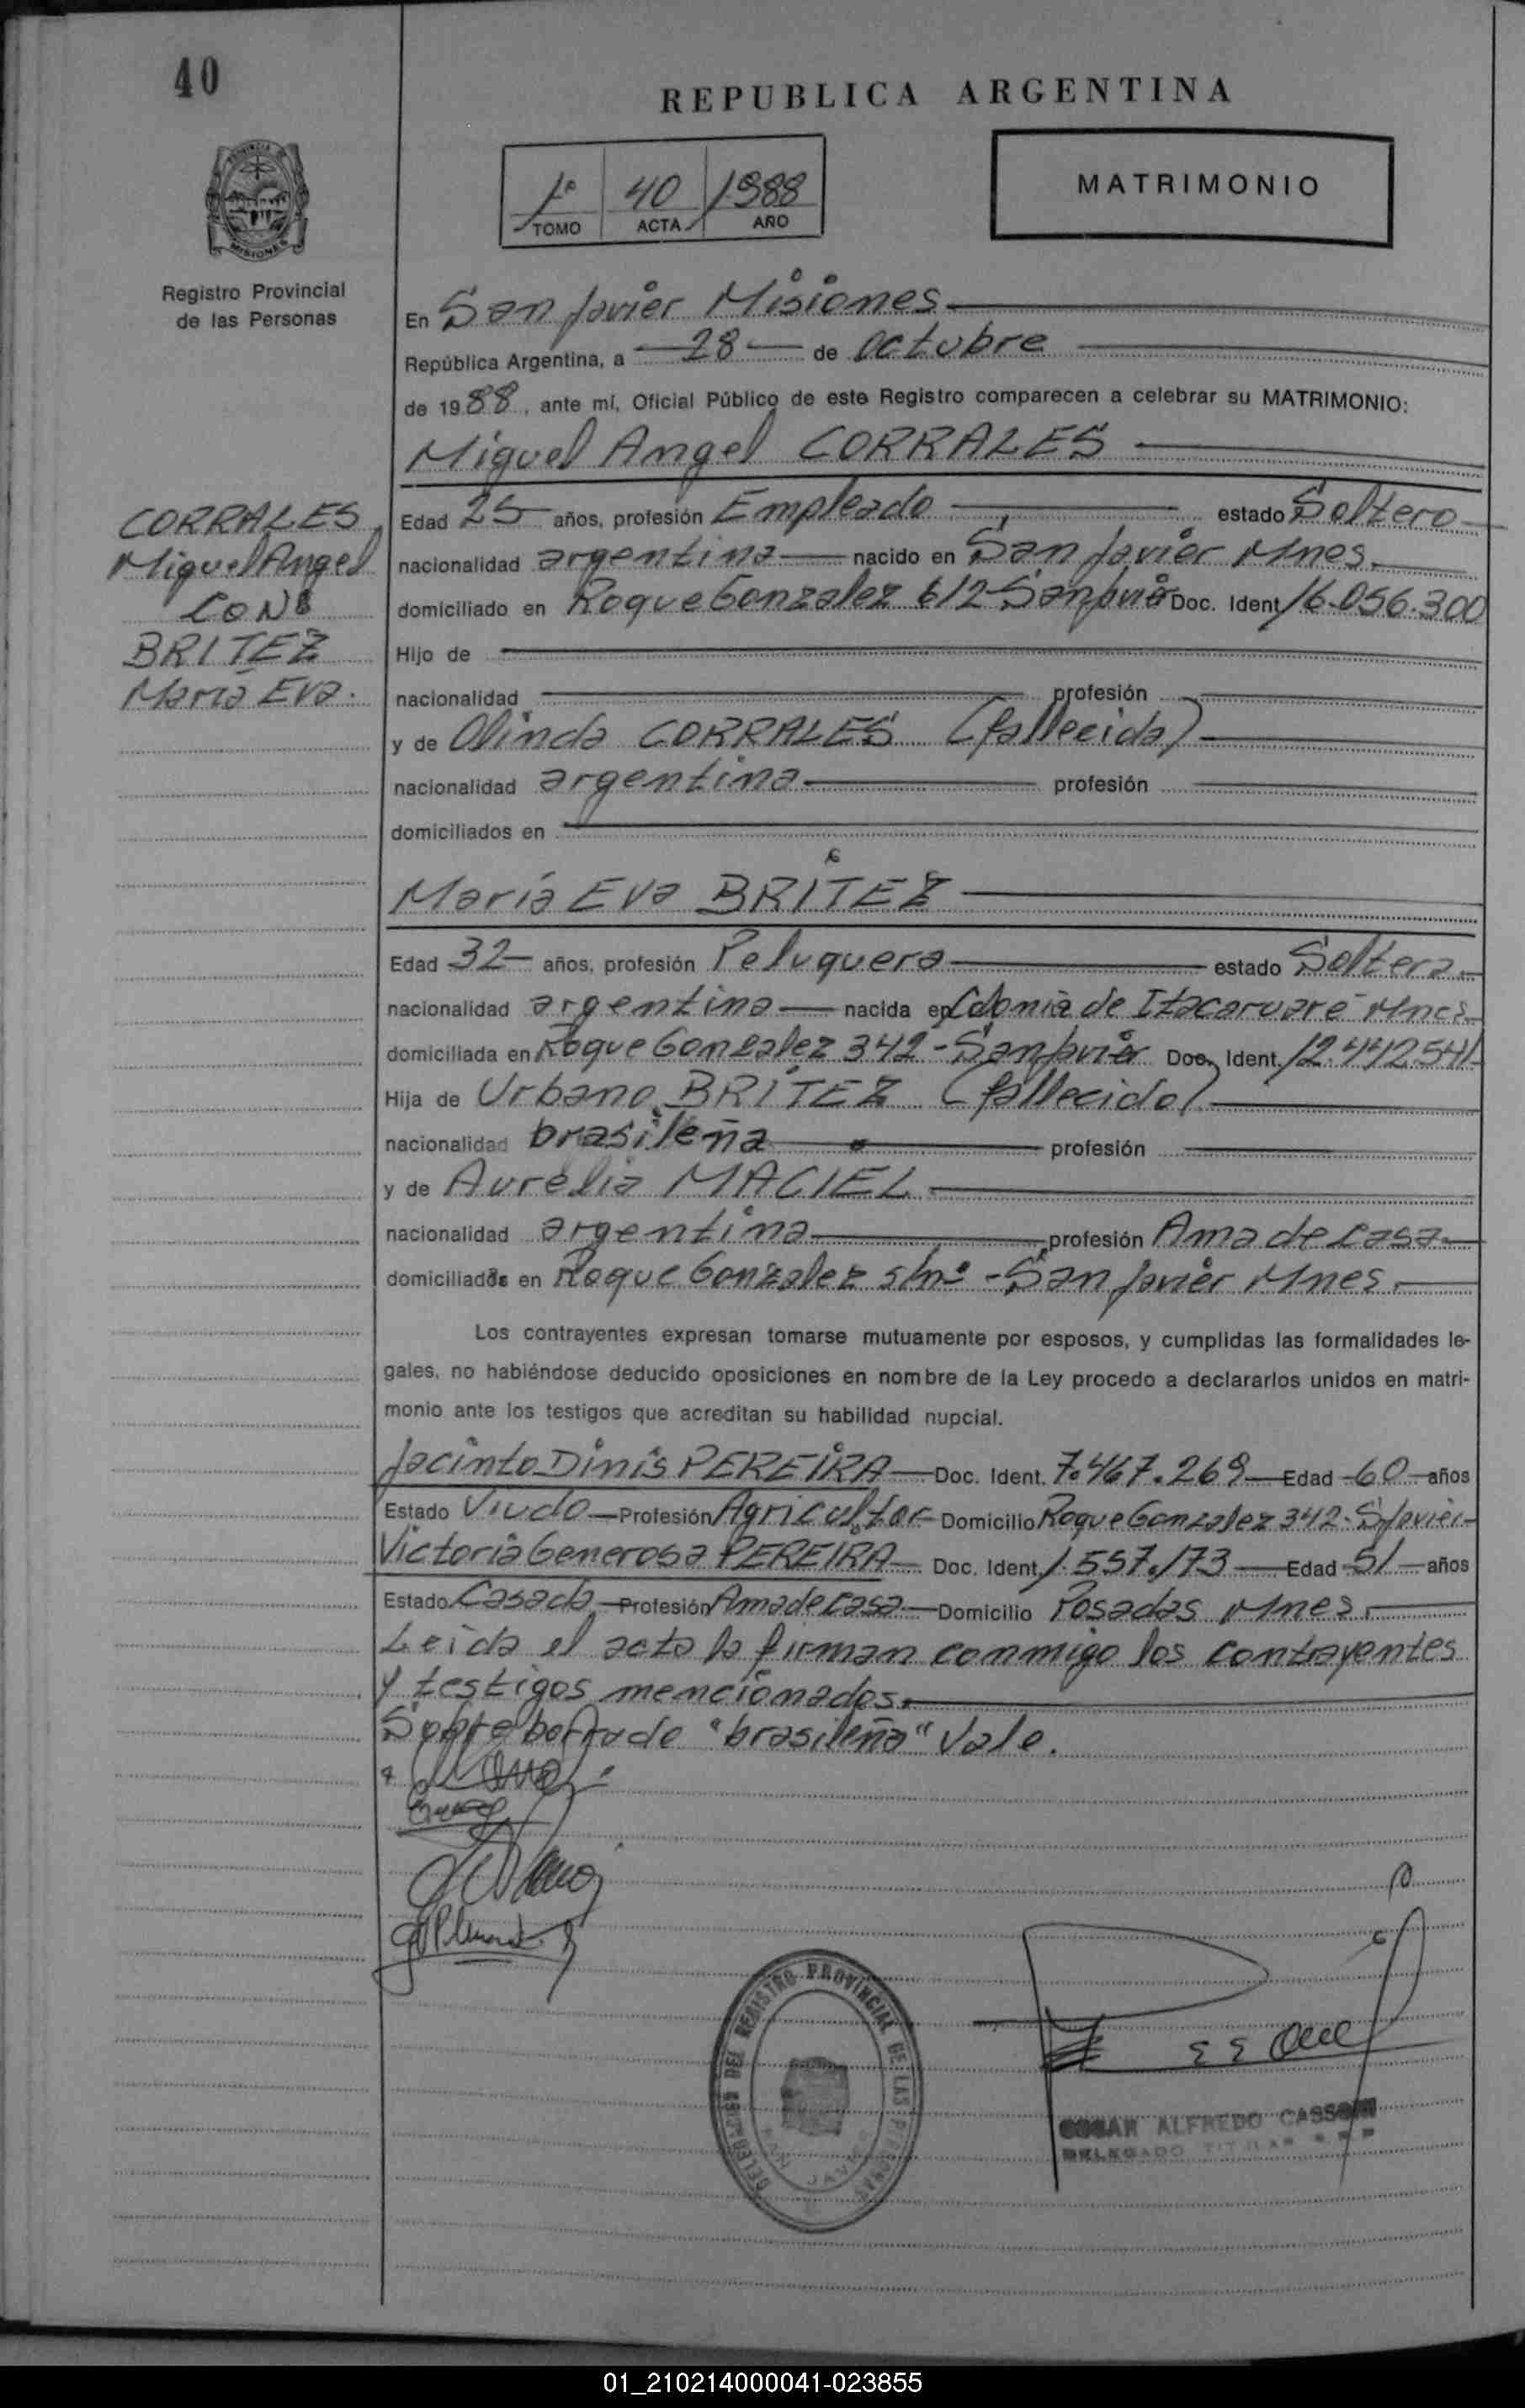 40
REPUBLICA ARGENTINA
1º 40 1988
TOMO ACTA AÑO
MATRIMONIO
PROVINCIA DE
MISIONES
Registro Provincial
de las Personas
En San Javier Misiones
República Argentina, a 28 de octubre
de 1988, ante mí, Oficial Público de este Registro comparecen a celebrar su MATRIMONIO:
Miguel Angel CORRALES
CORRALES
Miguel Angel
CON
BRITEZ
María Eva.
Edad 25 años, profesión Empleado estado Soltero
nacionalidad argentina nacido en San Javier Mnes.
domiciliado en Roque Gonzalez 612 San Javier Doc. Ident. 16.056.300
Hijo de
nacionalidad profesión
y de Olinda CORRALES (fallecida)
nacionalidad argentina profesión
domiciliados en
María Eva BRITEZ
Edad 32 años, profesión Peluquera estado Soltera
nacionalidad argentina nacida en Colonia de Itacaruaré Mnes.
domiciliada en Roque Gonzalez 342 - San Javier Doc. Ident. 12.442541
Hija de Urbano BRITEZ (fallecido)
nacionalidad brasileña profesión
y de Aurelia MACIEL
nacionalidad argentina profesión Ama de casa
domiciliados en Roque Gonzalez s/nº - San Javier Mnes.
Los contrayentes expresan tomarse mutuamente por esposos, y cumplidas las formalidades le-
gales, no habiéndose deducido oposiciones en nombre de la Ley procedo a declararlos unidos en matri-
monio ante los testigos que acreditan su habilidad nupcial.
Jacinto Dinis PEREIRA Doc. Ident. 7.467.269 Edad 60 años
Estado Viudo Profesión Agricultor Domicilio Roque Gonzalez 342 - S. Javier
Victoria Generosa PEREIRA Doc. Ident. 1.557.173 Edad 51 años
Estado Casada Profesión Ama de casa Domicilio Posadas Mnes.
Leida el acta la firman conmmigo los contrayentes
y testigos mencionados.
Sobre borrado "brasileña" Vale.
DELEGACION DEL REGISTRO PROVINCIAL DE LAS PERSONAS
SAN JAVIER
ALFREDO
DELEGADO TITULAR
01_210214000041-023855